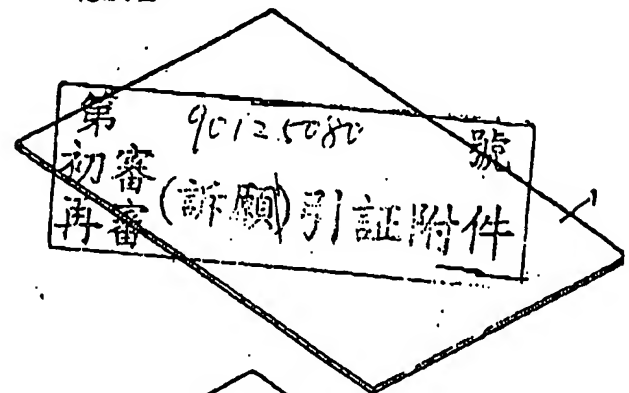 第 90125080 號
初審
再審 (訴願) 引証附件
1